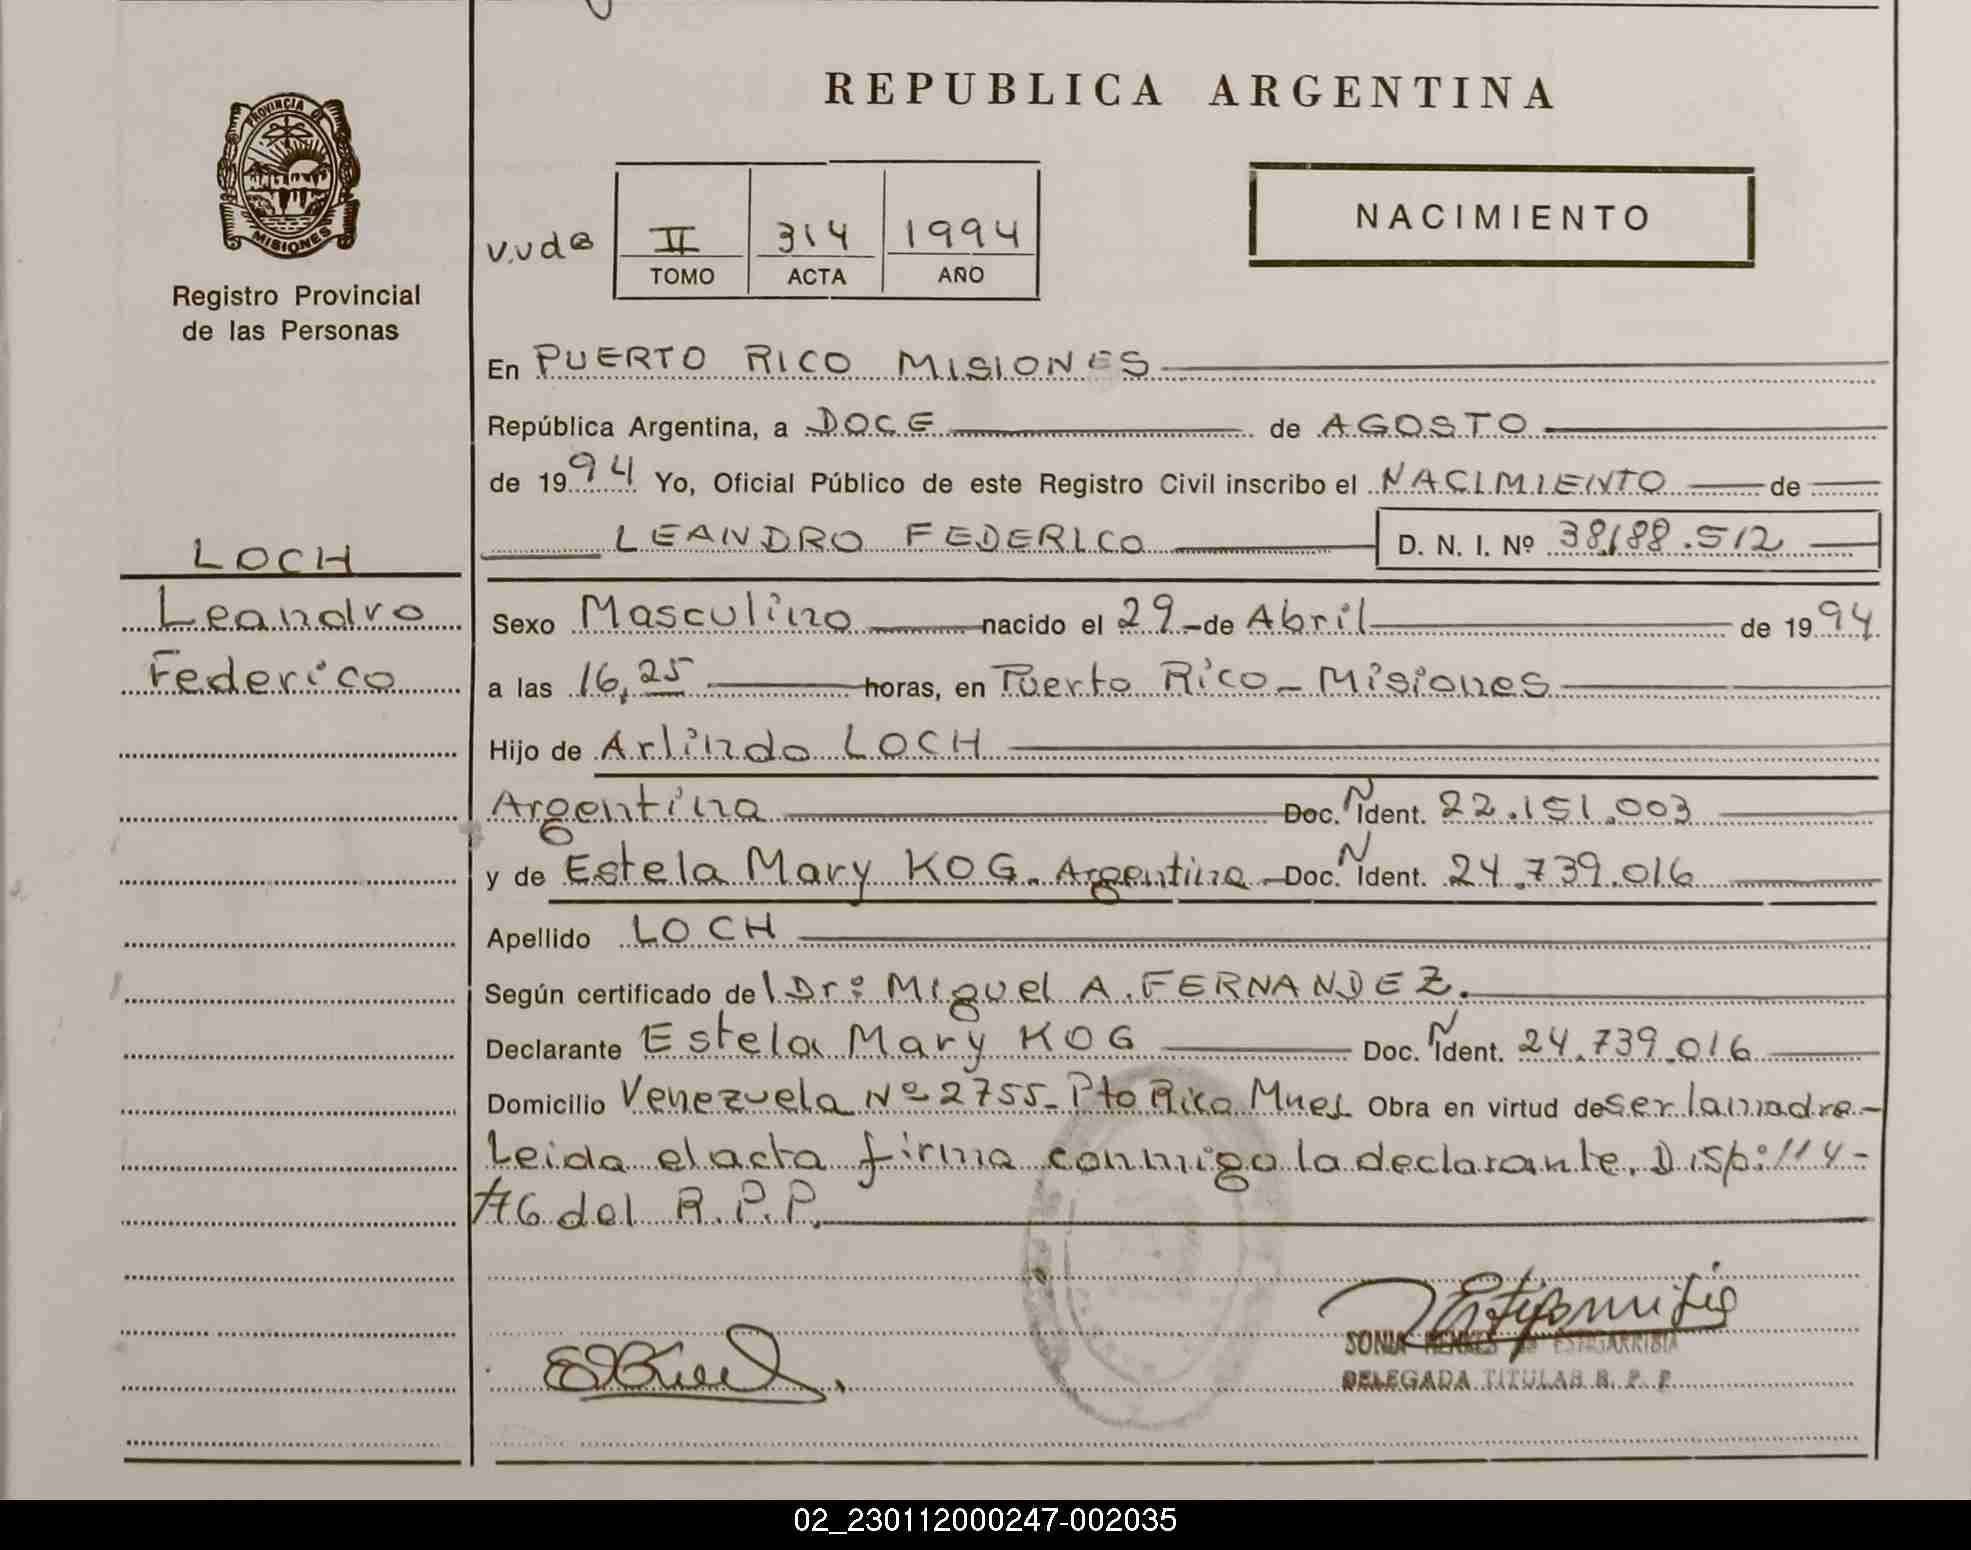 REPUBLICA ARGENTINA
PROVINCIA DE
MISIONES
Registro Provincial
de las Personas
NACIMIENTO
II 314 1994
TOMO ACTA AÑO
En PUERTO RICO MISIONES
República Argentina, a DOCE de AGOSTO
de 1994 Yo, Oficial Público de este Registro Civil inscribo el NACIMIENTO de
LEANDRO FEDERICO D. N. I. Nº 38,188.512
LOCH
Leandro
Federico
Sexo Masculino nacido el 29 de Abril de 1994
a las 16,25 horas, en Puerto Rico - Misiones
Hijo de Arlindo LOCH
Argentina Doc. N Ident. 22.151.003
y de Estela Mary KOG. Argentina Doc. N Ident. 24.739.016
Apellido LOCH
Según certificado del Dr: Miguel A. FERNANDEZ.
Declarante Estela Mary KOG Doc. N Ident. 24.739.016
Domicilio Venezuela Nº 2755- Pto Rico Mnes Obra en virtud de ser la madre-
Leida el acta firma conmigo la declarante. Disp: 114-
76 del R.P.P.
SONIA DE ESTIGARRIBIA
DELEGADA TITULAR R. P. P.
02_230112000247-002035